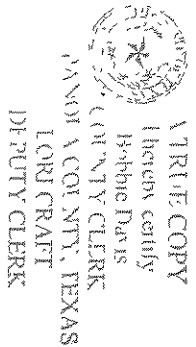 TRUE COPY
I hereby certify
Debbie Davis
COUNTY CLERK
COUNTY, TEXAS
LORI CRAFT
DEPUTY CLERK